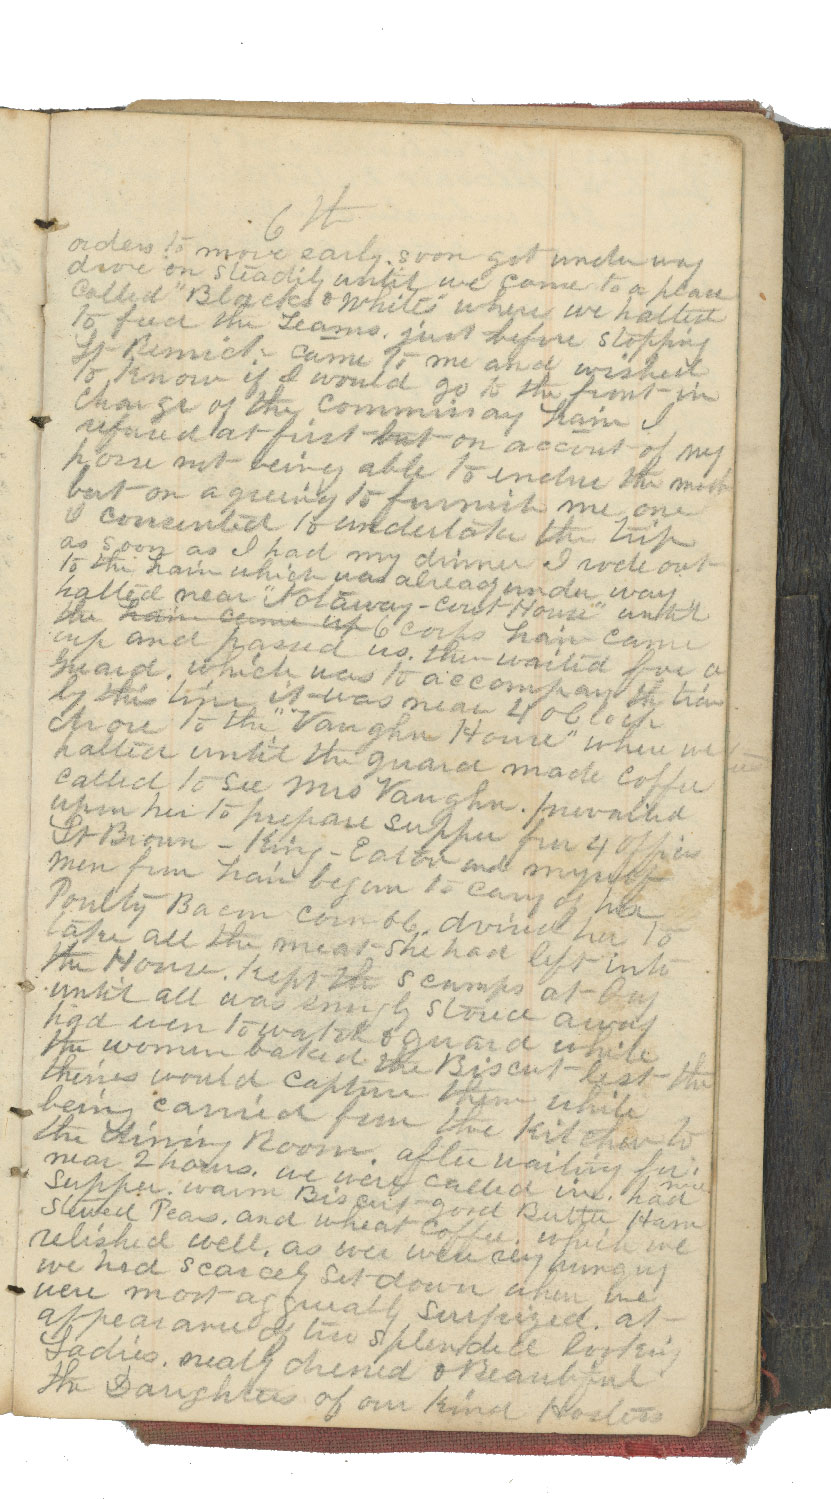 6th
orders to move early. soon got under way
drove on steadily until we came to a place
Called "Blacks & Whites" where we halted
to feed the Teams. just before stopping
Lt Remick came to me and wished
to know if I would go to the front in
Charge of the Commissary train I
refused at first but on account of my
horse not being able to endure the march
but on agreeing to furnish me one
I consented to undertake the trip
as soon as I had my dinner I rode out
to the train which was already under way
halted near "Notaway-Court House" until
the train came up 6 corps train came
up and passed us. then waited for a
Guard. which was to accompany the train
by this time it was near 4 oclock
drove to the "Vaughn House" where we
halted until the guard made Coffee
called to see Mrs Vaughn. prevailed
upon her to prepare supper for 4 offices
Lt Brown - King - Eaton and myself
men from train began to cary of her
Poultry Bacon corn &c. advised her to
take all the meat she had left into
the House. Kept the scamps at bay
until all was snugly stored away
had even to watch & guard while
the women baked the Biscut lest the
theives would capture them while
being carried from the Kitchen to
the dining Room. after waiting for
near 2 hours. we were called in. had nice
Supper. warm Biscut good Butter Ham
Stewed Pears. and wheat Coffee. which we
relished well. as wee were very hungry
we had scarcely set down when we
were most aggreeably surprized. at
appearance of two splendid looking
Ladies. neatly dressed & Beautiful
the Daughters of our Kind Hostess